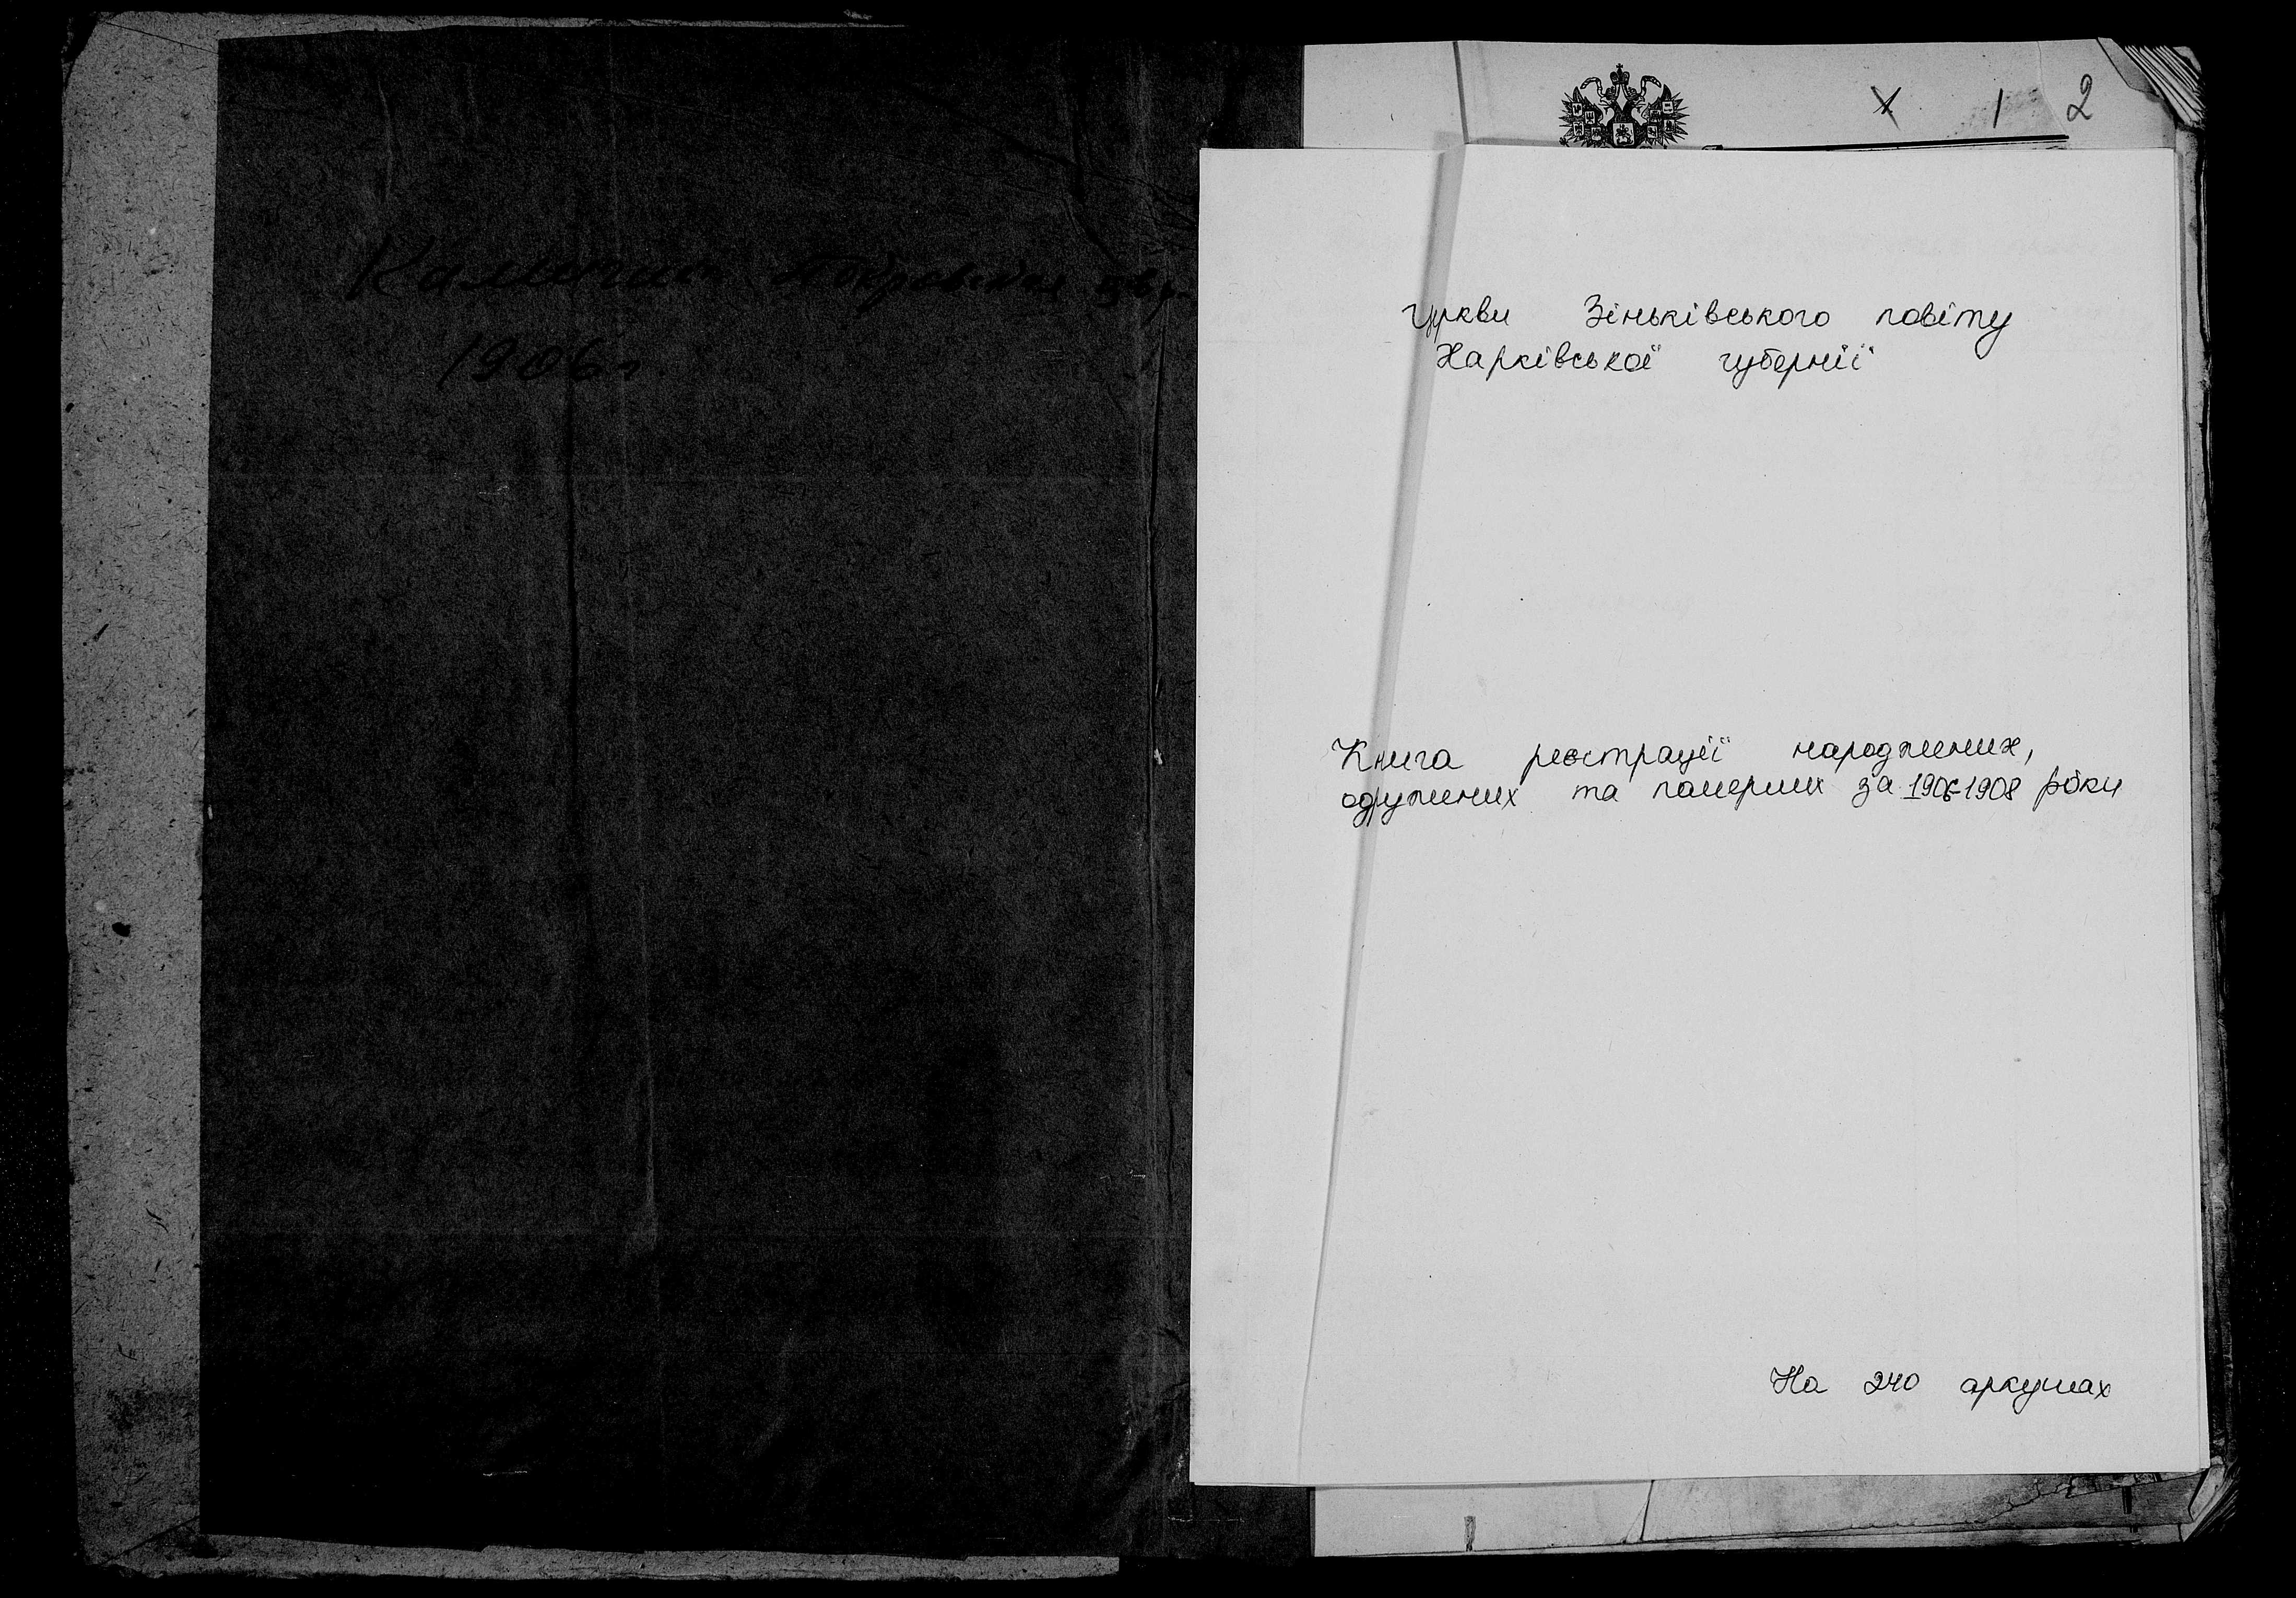 Покровская
1906 г.
1 2
Церкви Зіньківського повіту
Харківської губернії
Книга реєстрації народжених,
одружених та памерших за 1906-1908 роки
На 240 аркушах